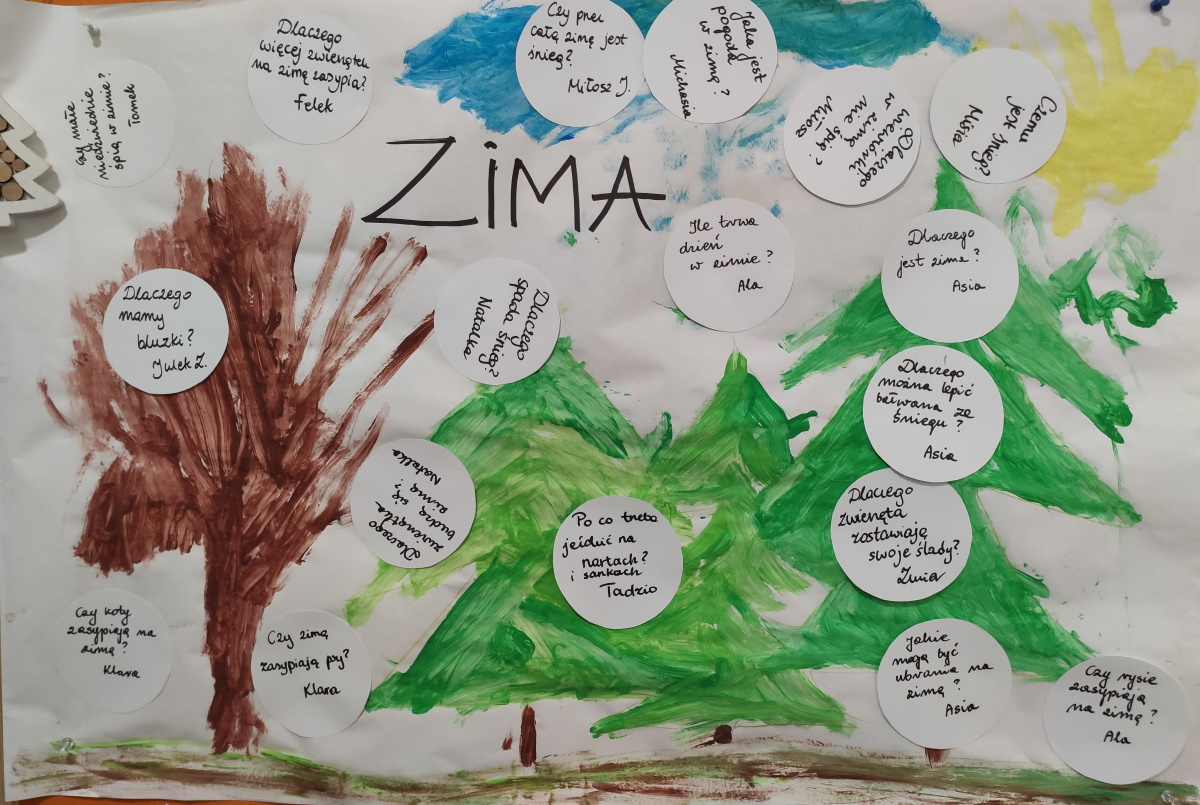 ZIMA
Czy małe
niedźwiedzie
śpią w zimie?
Tomek
Dlaczego
więcej zwierzątek
na zimę zasypia?
Felek
Czy przez
całą zimę jest
śnieg?
Miłosz J.
Jaka jest
pogoda
w zimę?
Michasia
Dlaczego
wiewiórki
w zimę
nie śpią?
Miłosz
Czemu
jest śnieg?
Misia
Dlaczego
mamy
bluzki?
Julek Z.
Dlaczego
spada śnieg?
Natalka
Ile trwa
dzień
w zimie?
Ala
Dlaczego
jest zima?
Asia
Dlaczego
można lepić
bałwana ze
śniegu?
Asia
Dlaczego
zwierzątka
budzą się
zimą?
Natalka
Po co trzeba
jeździć na
nartach?
i sankach
Tadzio
Dlaczego
zwierzęta
zostawiają
swoje ślady?
Czy koty
zasypiają na
zimę?
Klara
Czy zimą
zasypiają psy?
Klara
Jakie
mogą być
ubrania na
zimę?
Asia
Czy rysie
zasypiają
na zimę?
Ala